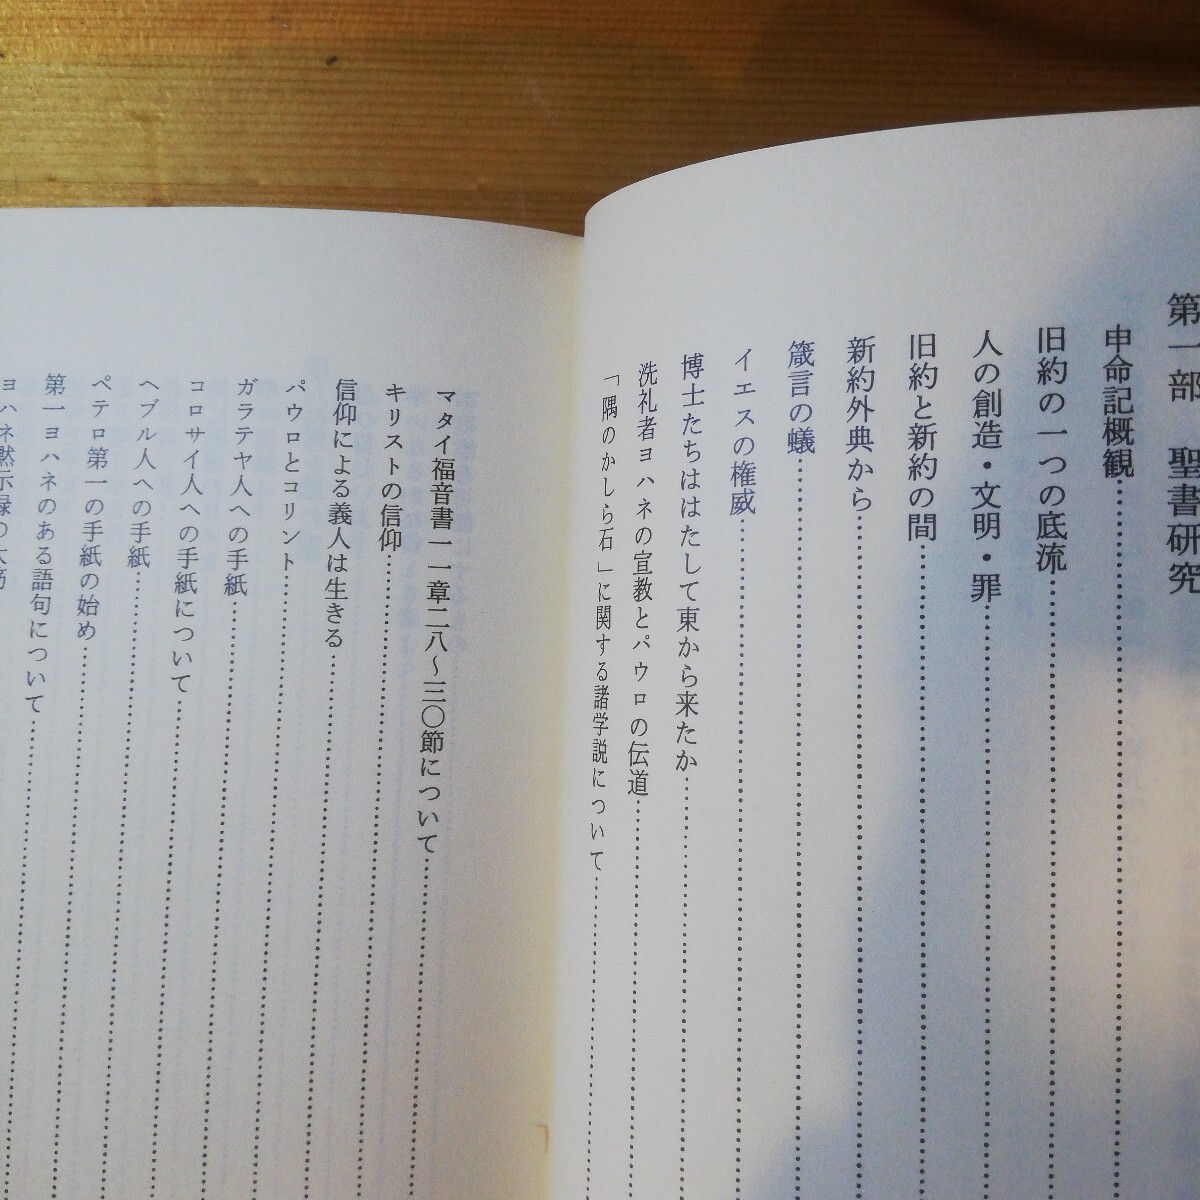 第一部　聖書研究
申命記概観
旧約の一つの底流
人の創造・文明・罪
旧約と新約の間
新約外典から
箴言の蟻
イエスの権威
博士たちははたして東から来たか
洗礼者ヨハネの宣教とパウロの伝道
「隅のかしら石」に関する諸学説について
マタイ福音書一一章二八〜三〇節について
キリストの信仰
信仰による義人は生きる
パウロとコリント
ガラテヤ人への手紙
コロサイ人への手紙について
ヘブル人への手紙
ペテロ第一の手紙の始め
第一ヨハネのある語句について
ヨハネ黙示録の大筋